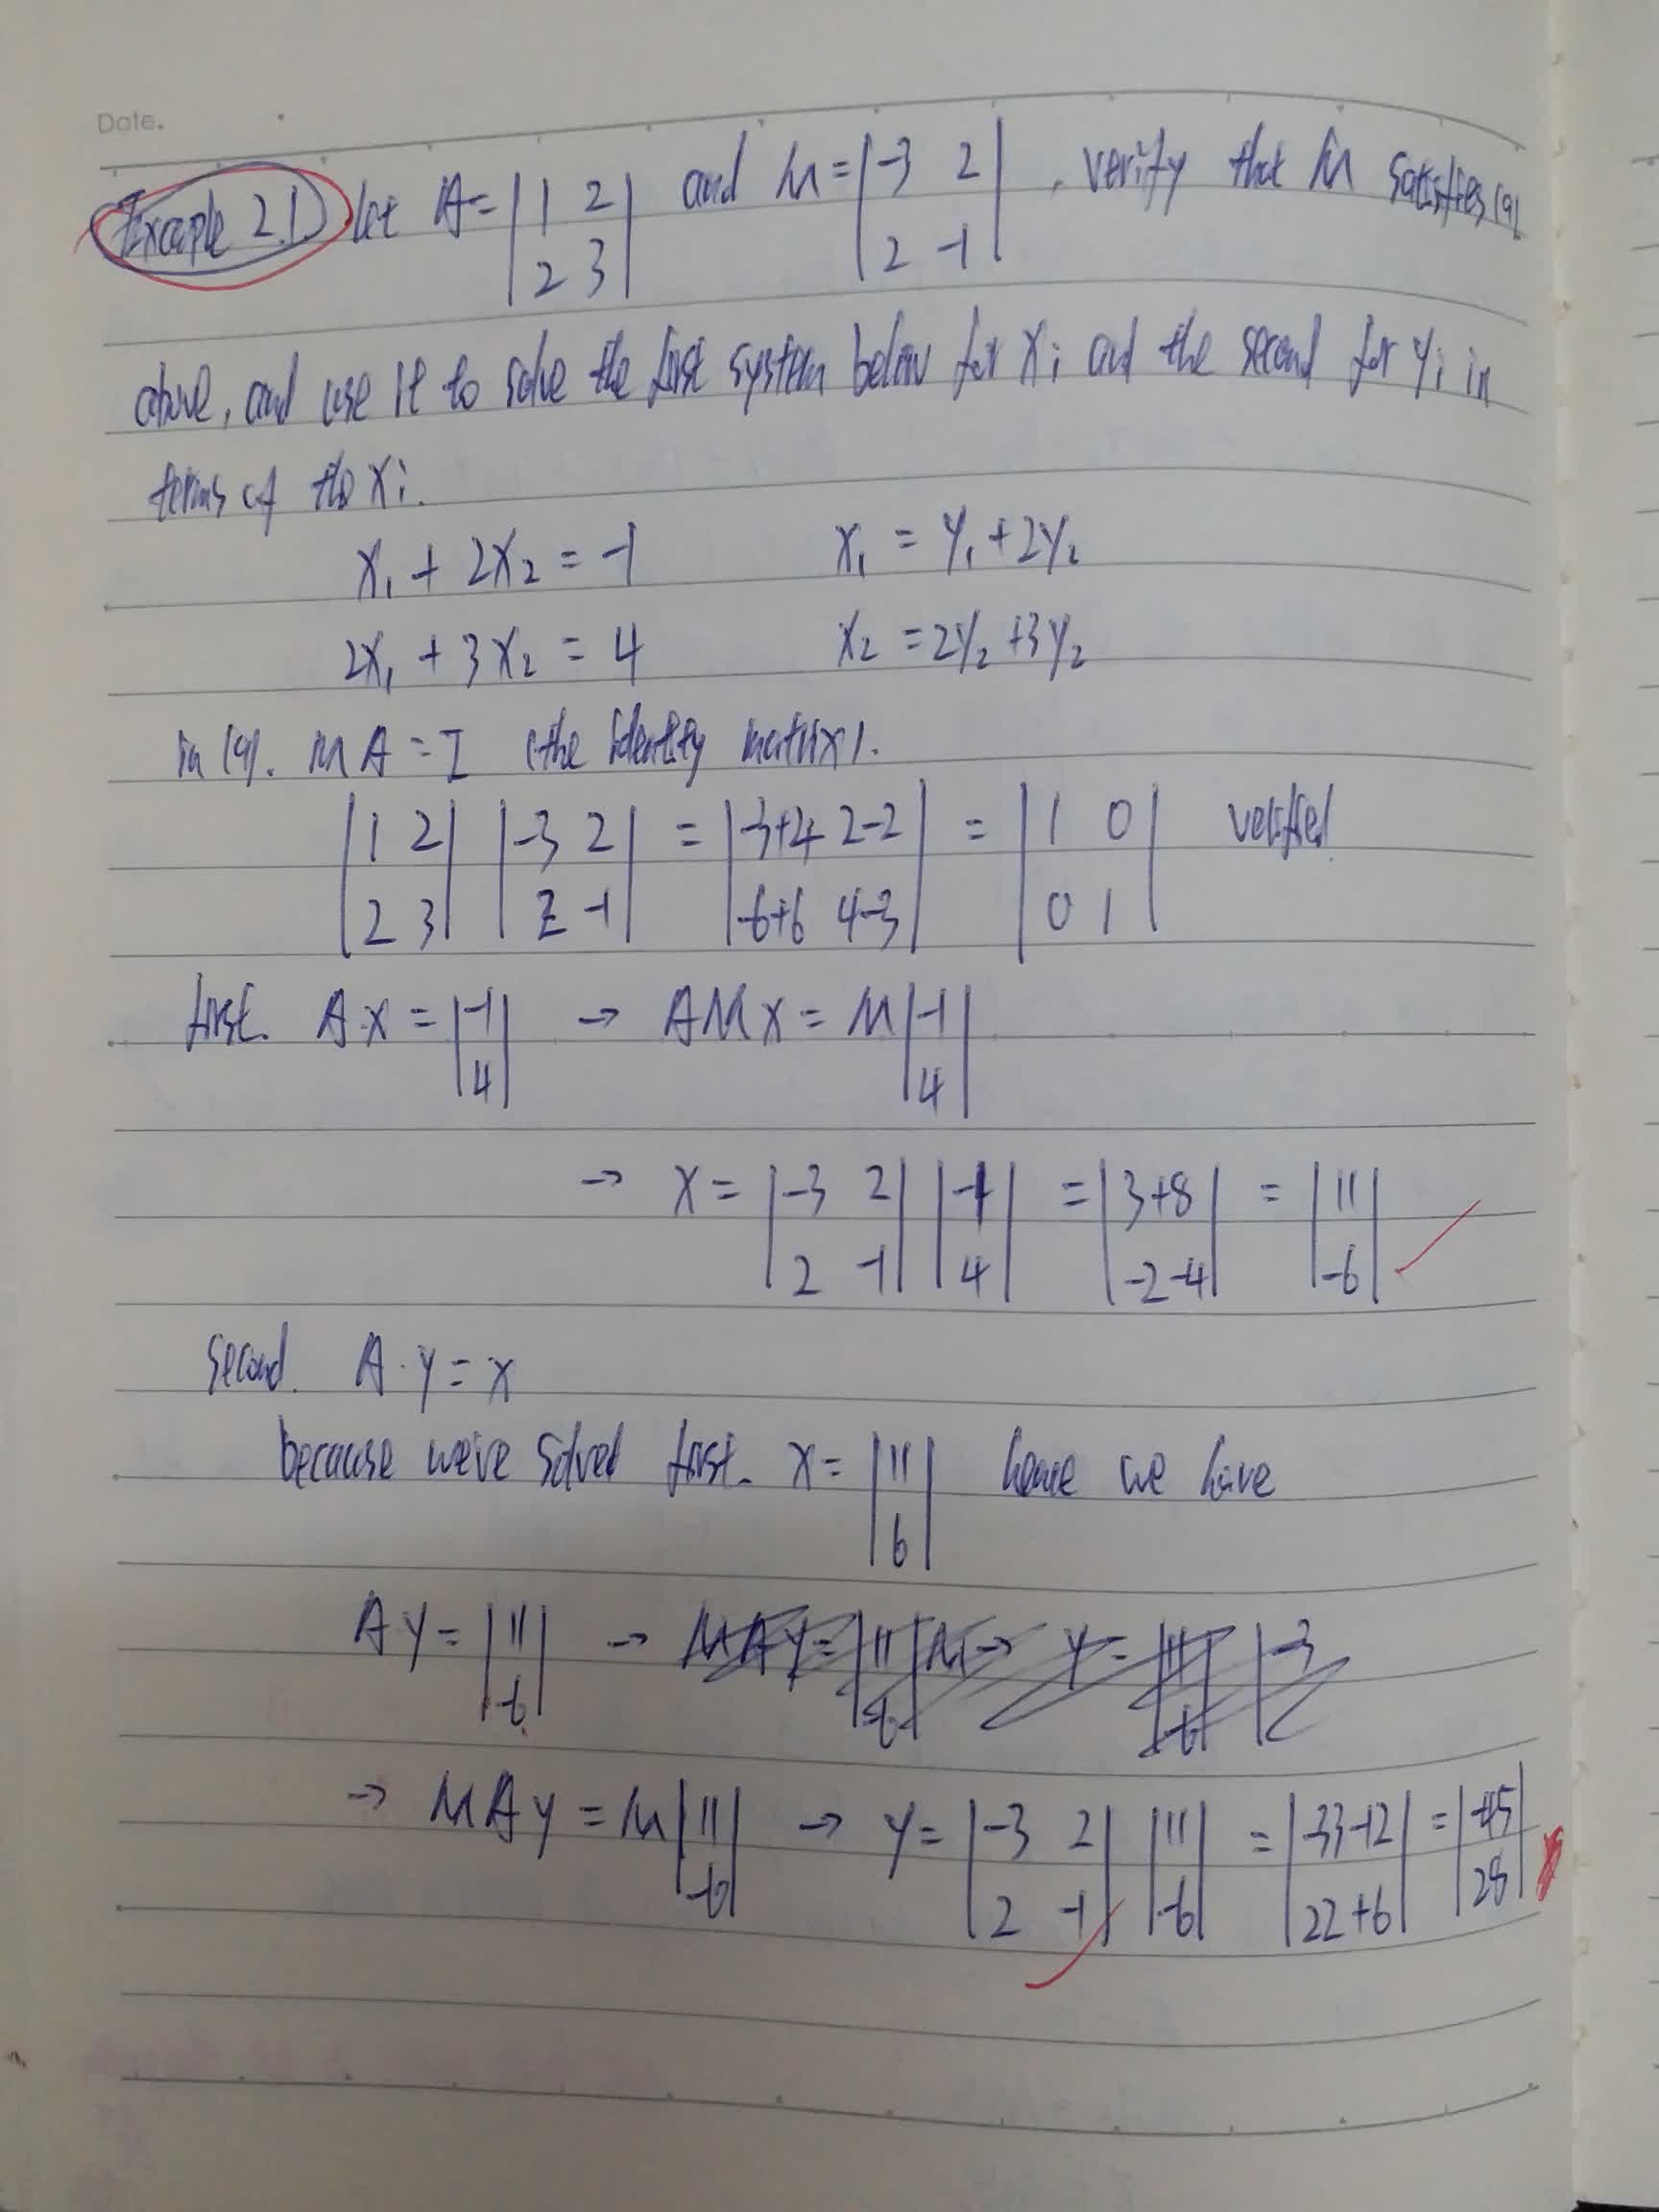 Date.
Exaple 2.1. let A = |1 2| and M = |-3 2| , verify that M satisfies (9)
|2 3| |2 -1|
above, and use it to solve the first system below for xi and the second for yi in
terms of the xi.
x₁ + 2x₂ = -1 x₁ = y₁ + 2y₂
2x₁ + 3x₂ = 4 x₂ = 2y₂ + 3y₂
in (9). MA = I (the identity matrix).
|1 2| |-3 2| = |-3+4 2-2| = |1 0| verified.
|2 3| |2 -1| |-6+6 4-3| |0 1|
first. A·x = |-1| → AMx = M|-1|
|4| |4|
→ x = |-3 2| |-1| = |3+8| = |11|
|2 -1| |4| |-2-4| |-6|
second. A·y = x
because we've solved first. x = |11| hence we have
|6|
Ay = |11| → MAy = |11| M → y = |11| |-3
|-6| |-6| |-6|
→ MAy = M|11| → y = |-3 2| |11| = |-33-12| = |-45|
|-6| |2 -1| |-6| |22+6| |28|